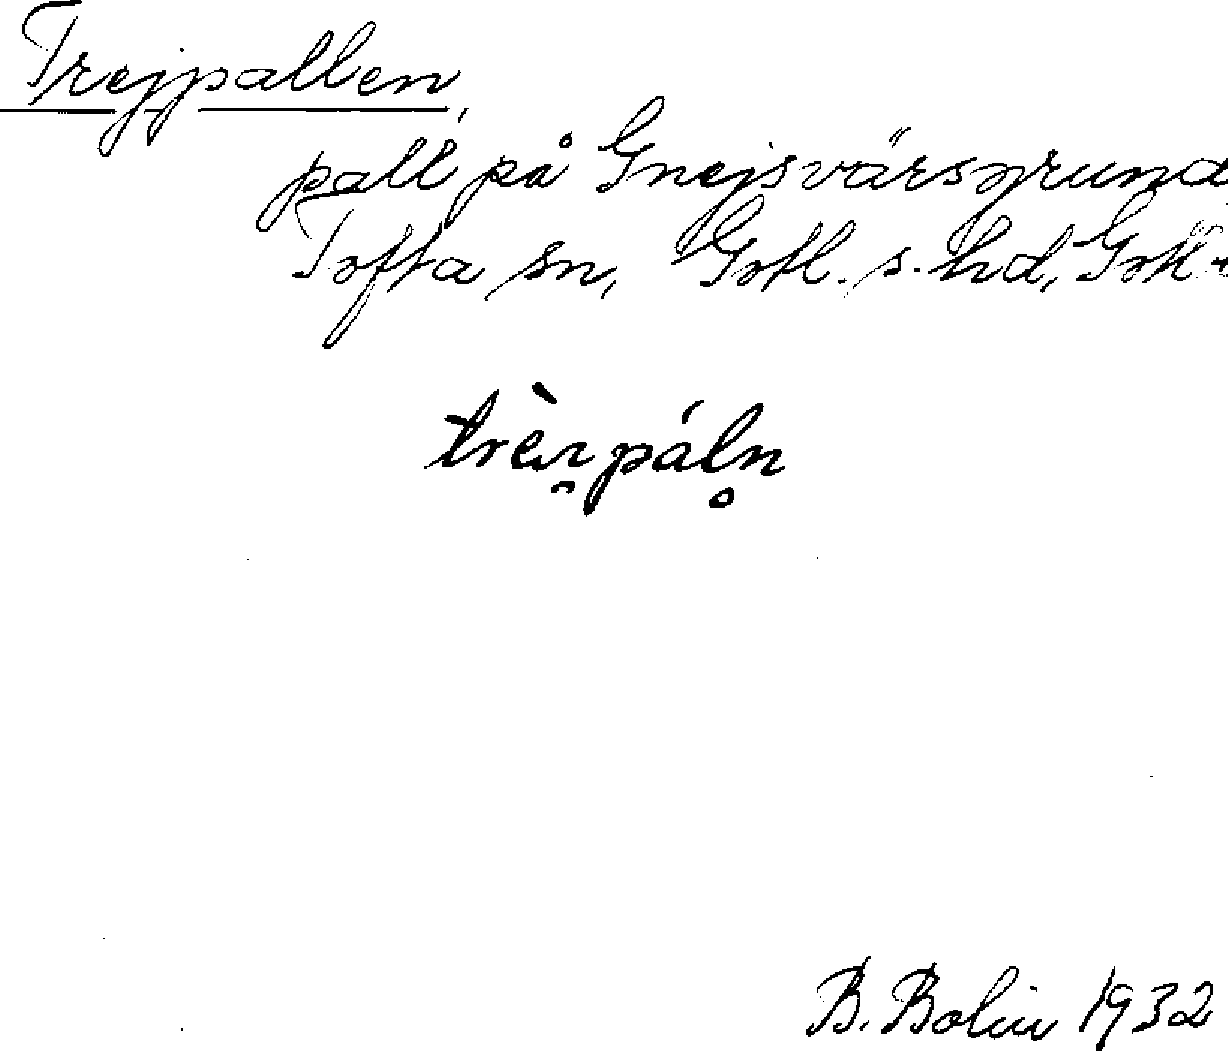 Trejpallen,
pall på Gnejsvärsgrund,
Tofta sn, Gotl. s. hd, Gotl.
B. Bolin 1932